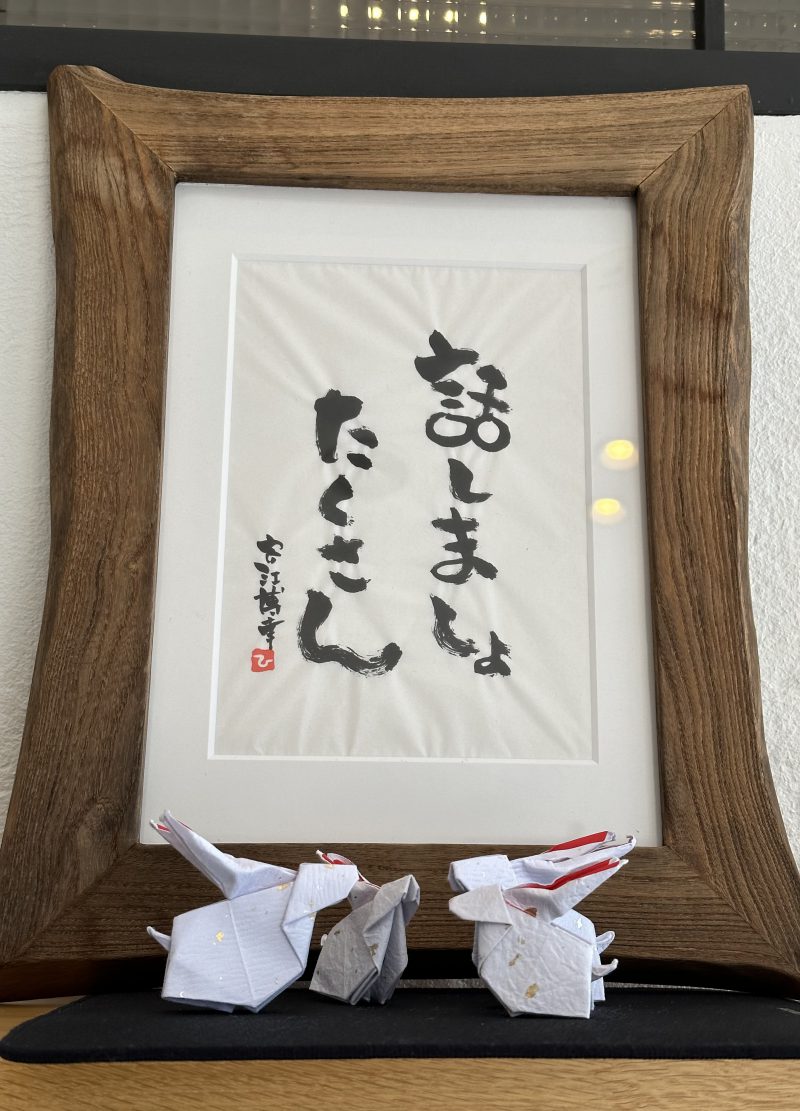 話しましょ
たくさん
安江博幸
ひ